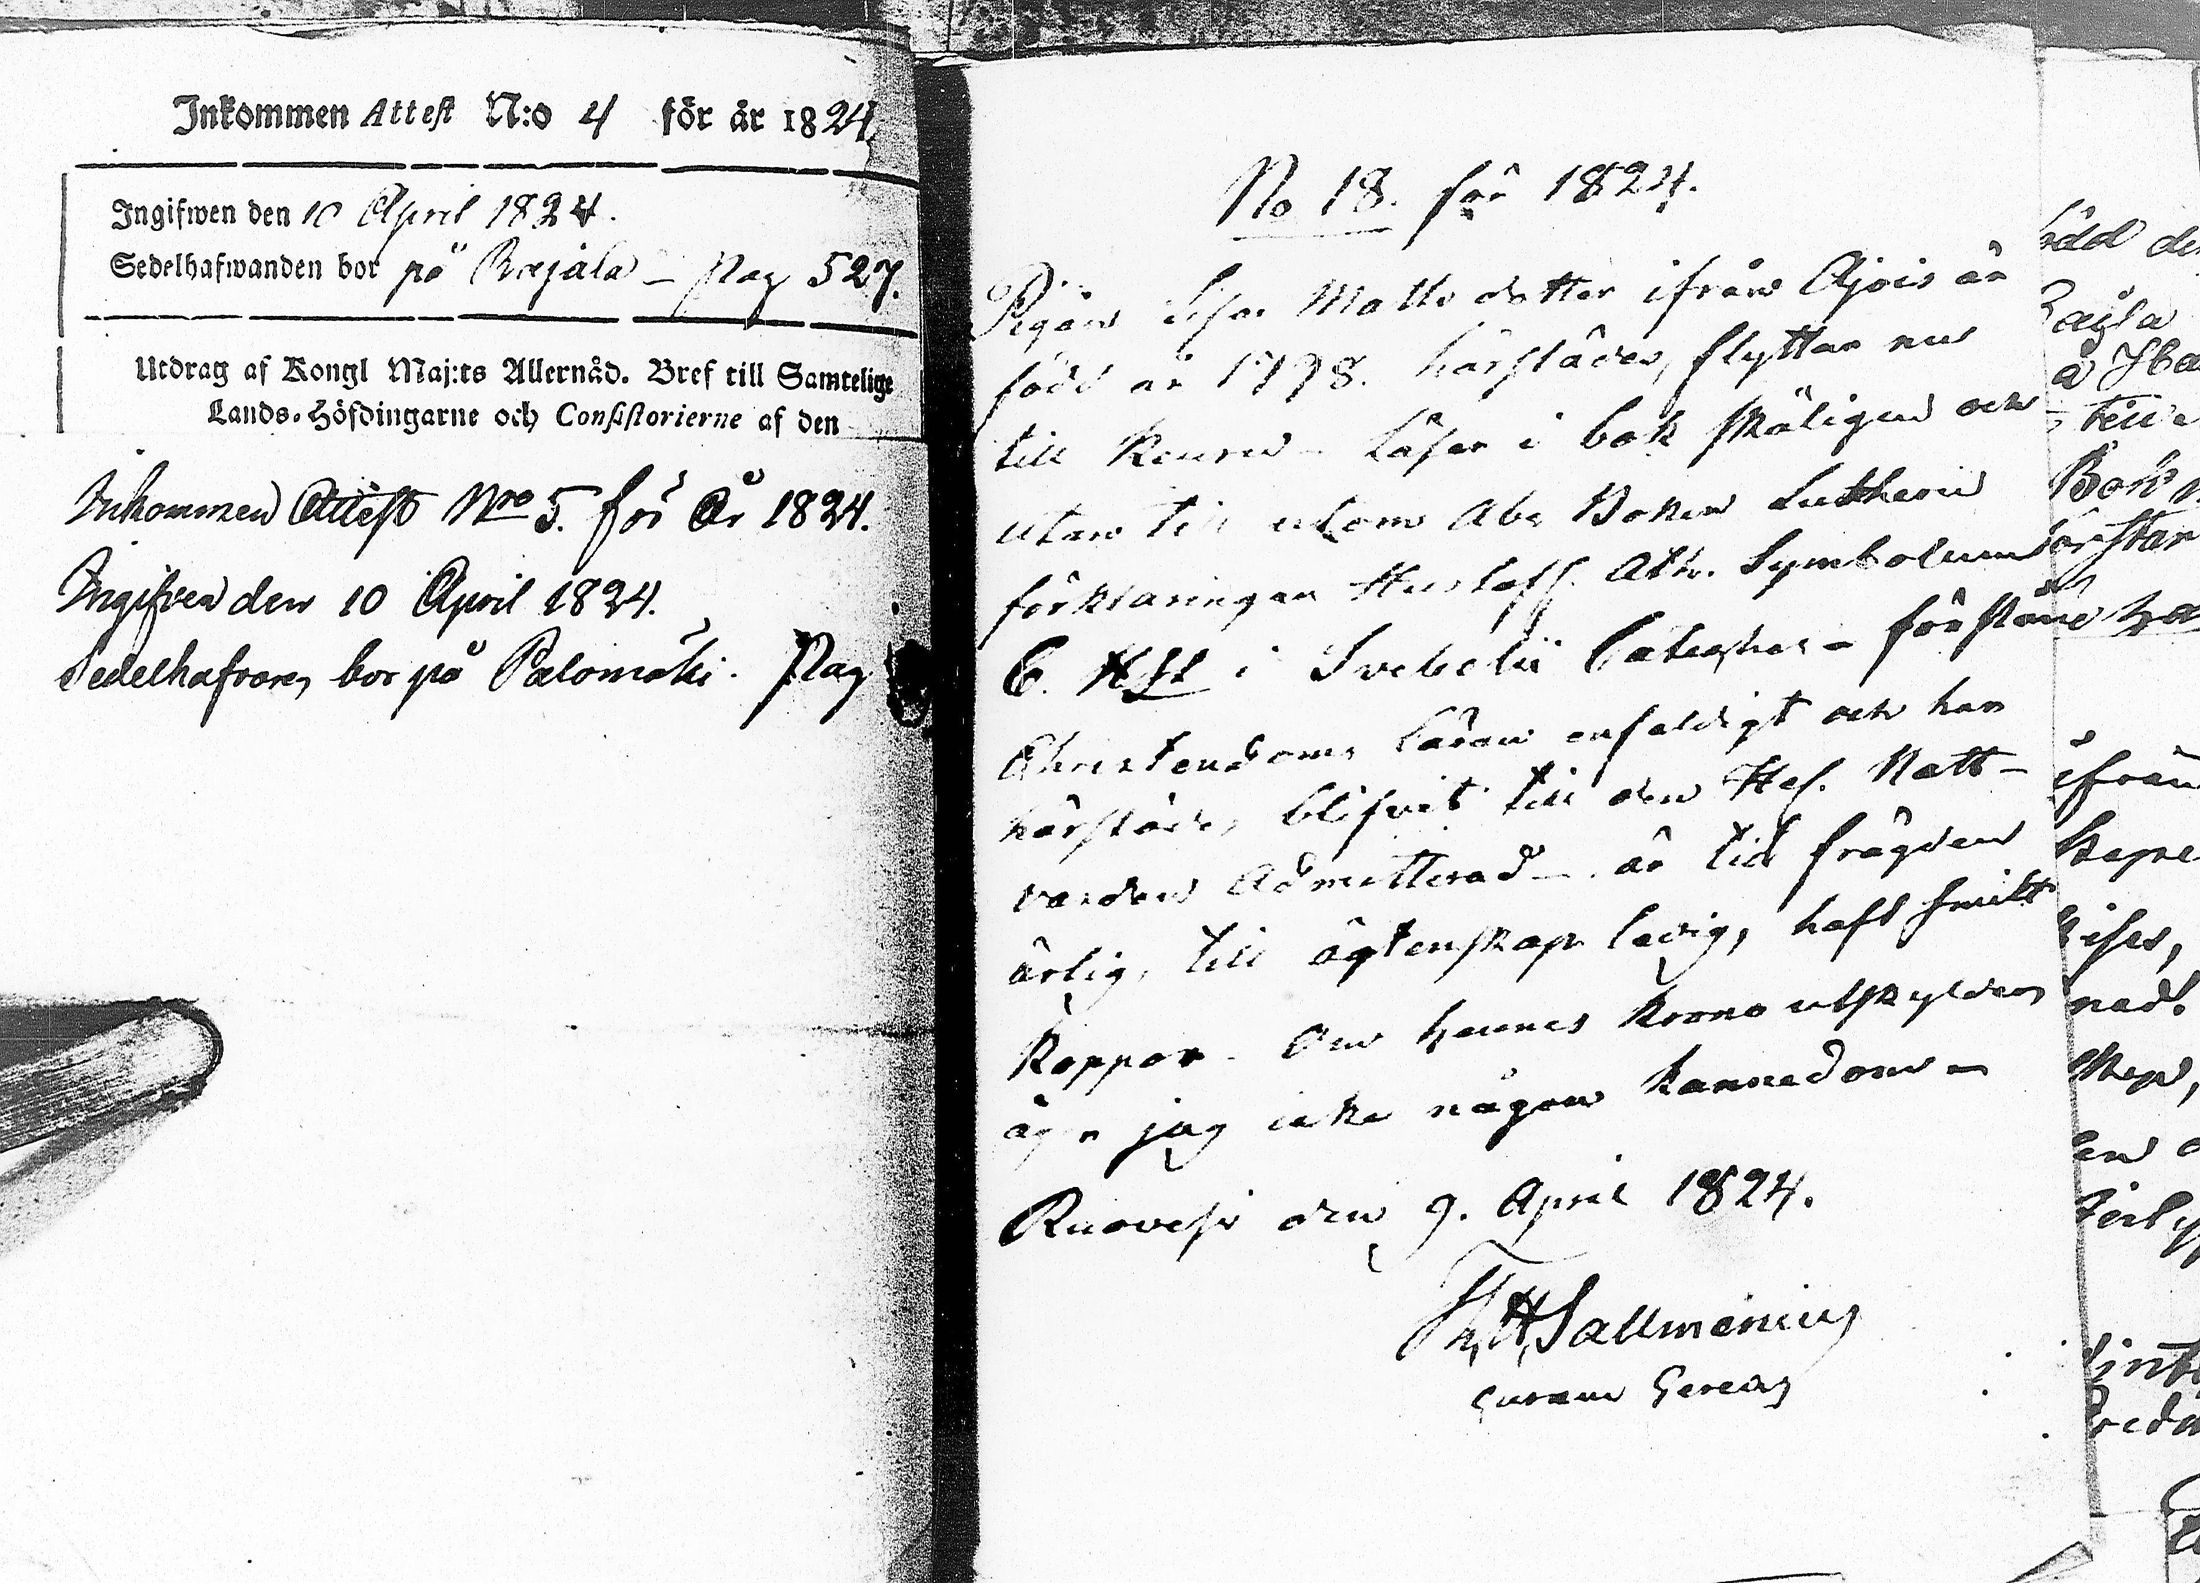 Inkommen Attest N:o 4 för år 1824
Ingifwen den 10 April 1824.
Sedelhafwanden bor på Rajala – Pag 527.
Utdrag af Kongl Maj:ts Allernåd. Bref till Samtelige
Lands-Höfdingarne och Consistorierne af den
Inkommen Attest Nro 5. för År 1824.
Ingifven den 10 April 1824.
Sedelhafvaren bor på Palomäki. Pag
No 18. för 1824.
Pigan Lisa Matts dotter ifrån Ajois är
född år 1798. härstädes, flyttar nu
till Keuru – Läser i bok skäligen och
utan till utom Abc Boken Lutheri
förklaringen Hustafl. Ath. Symbolum
i Svebelii Cateches – förstår
Christendoms Läran enfaldigt och har
härstädes blifvit till den Hel. Natt-
varden Admitterad – är tid frägden
ärlig, till ägtenskap ledig, haft smitt
Koppor – Om hennes krono utskylder
äger jag icke någon kännedom –
Ruovesi den 9. April 1824.
Th. H. Sallmenius
curam Gerens
ifrån